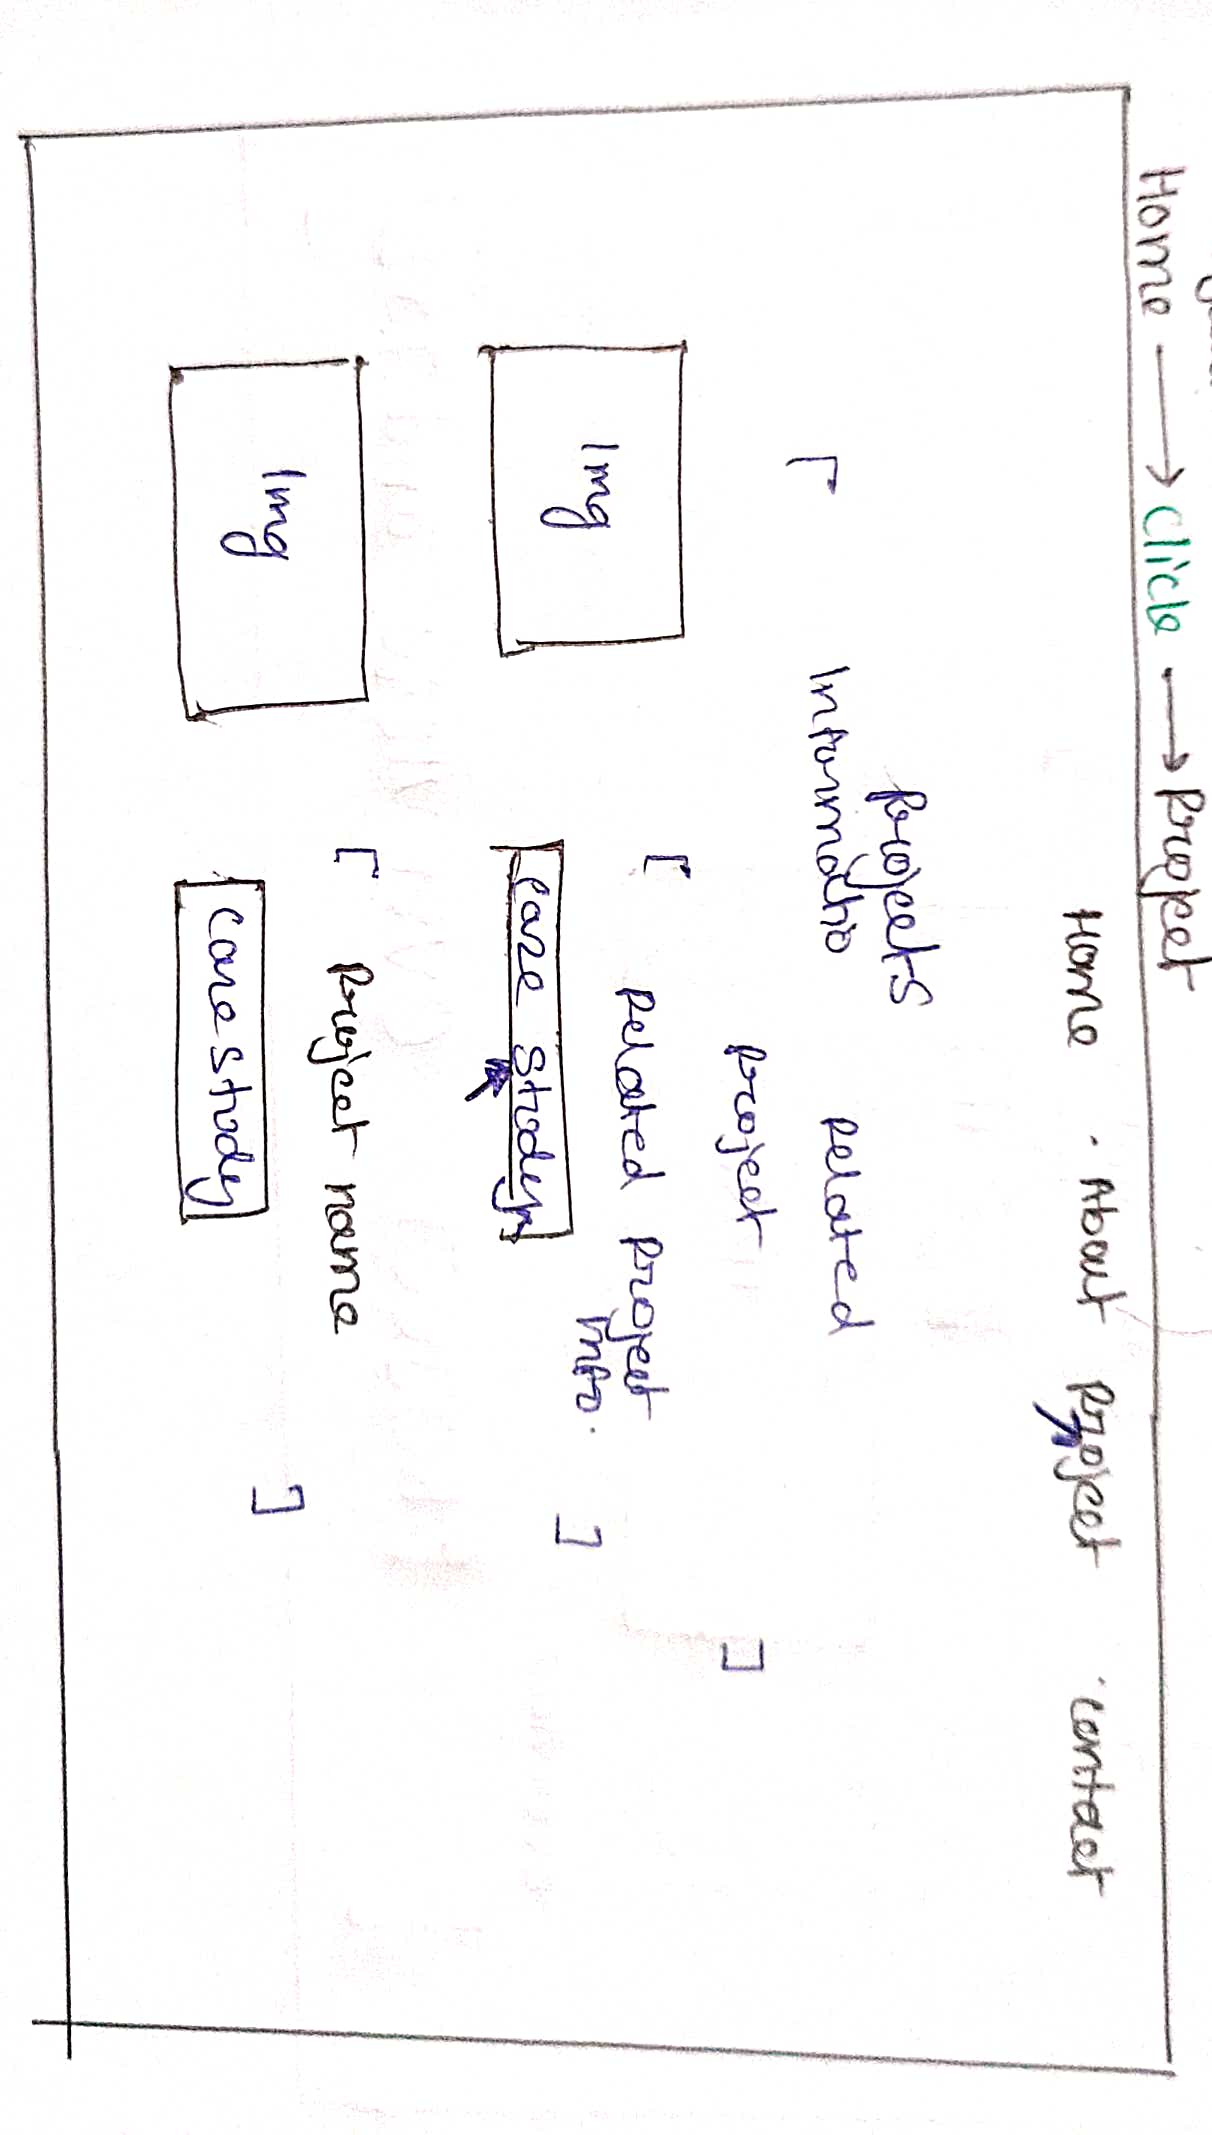 Home → Click → Project
Home · About Project · Contact
Projects
[ Informatio Related
Project ]
Img
[ Related Project
Info. ]
Case Study
Img
[ Project name ]
Case Study